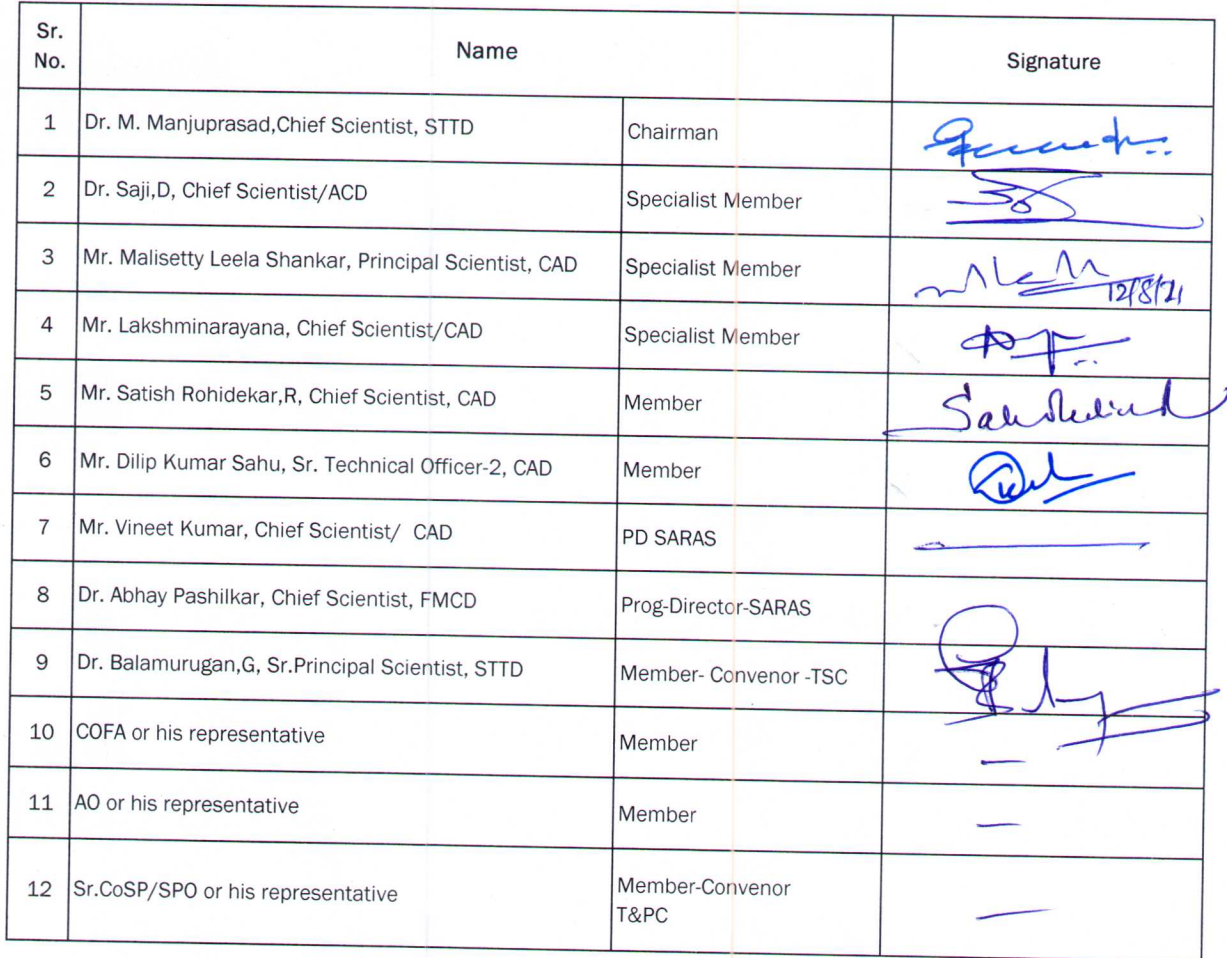 Sr. No. Name Signature
1 Dr. M. Manjuprasad,Chief Scientist, STTD Chairman
2 Dr. Saji,D, Chief Scientist/ACD Specialist Member
3 Mr. Malisetty Leela Shankar, Principal Scientist, CAD Specialist Member 12/8/21
4 Mr. Lakshminarayana, Chief Scientist/CAD Specialist Member
5 Mr. Satish Rohidekar,R, Chief Scientist, CAD Member
6 Mr. Dilip Kumar Sahu, Sr. Technical Officer-2, CAD Member
7 Mr. Vineet Kumar, Chief Scientist/ CAD PD SARAS
8 Dr. Abhay Pashilkar, Chief Scientist, FMCD Prog-Director-SARAS
9 Dr. Balamurugan,G, Sr.Principal Scientist, STTD Member- Convenor -TSC
10 COFA or his representative Member —
11 AO or his representative Member —
12 Sr.CoSP/SPO or his representative Member-Convenor T&PC —